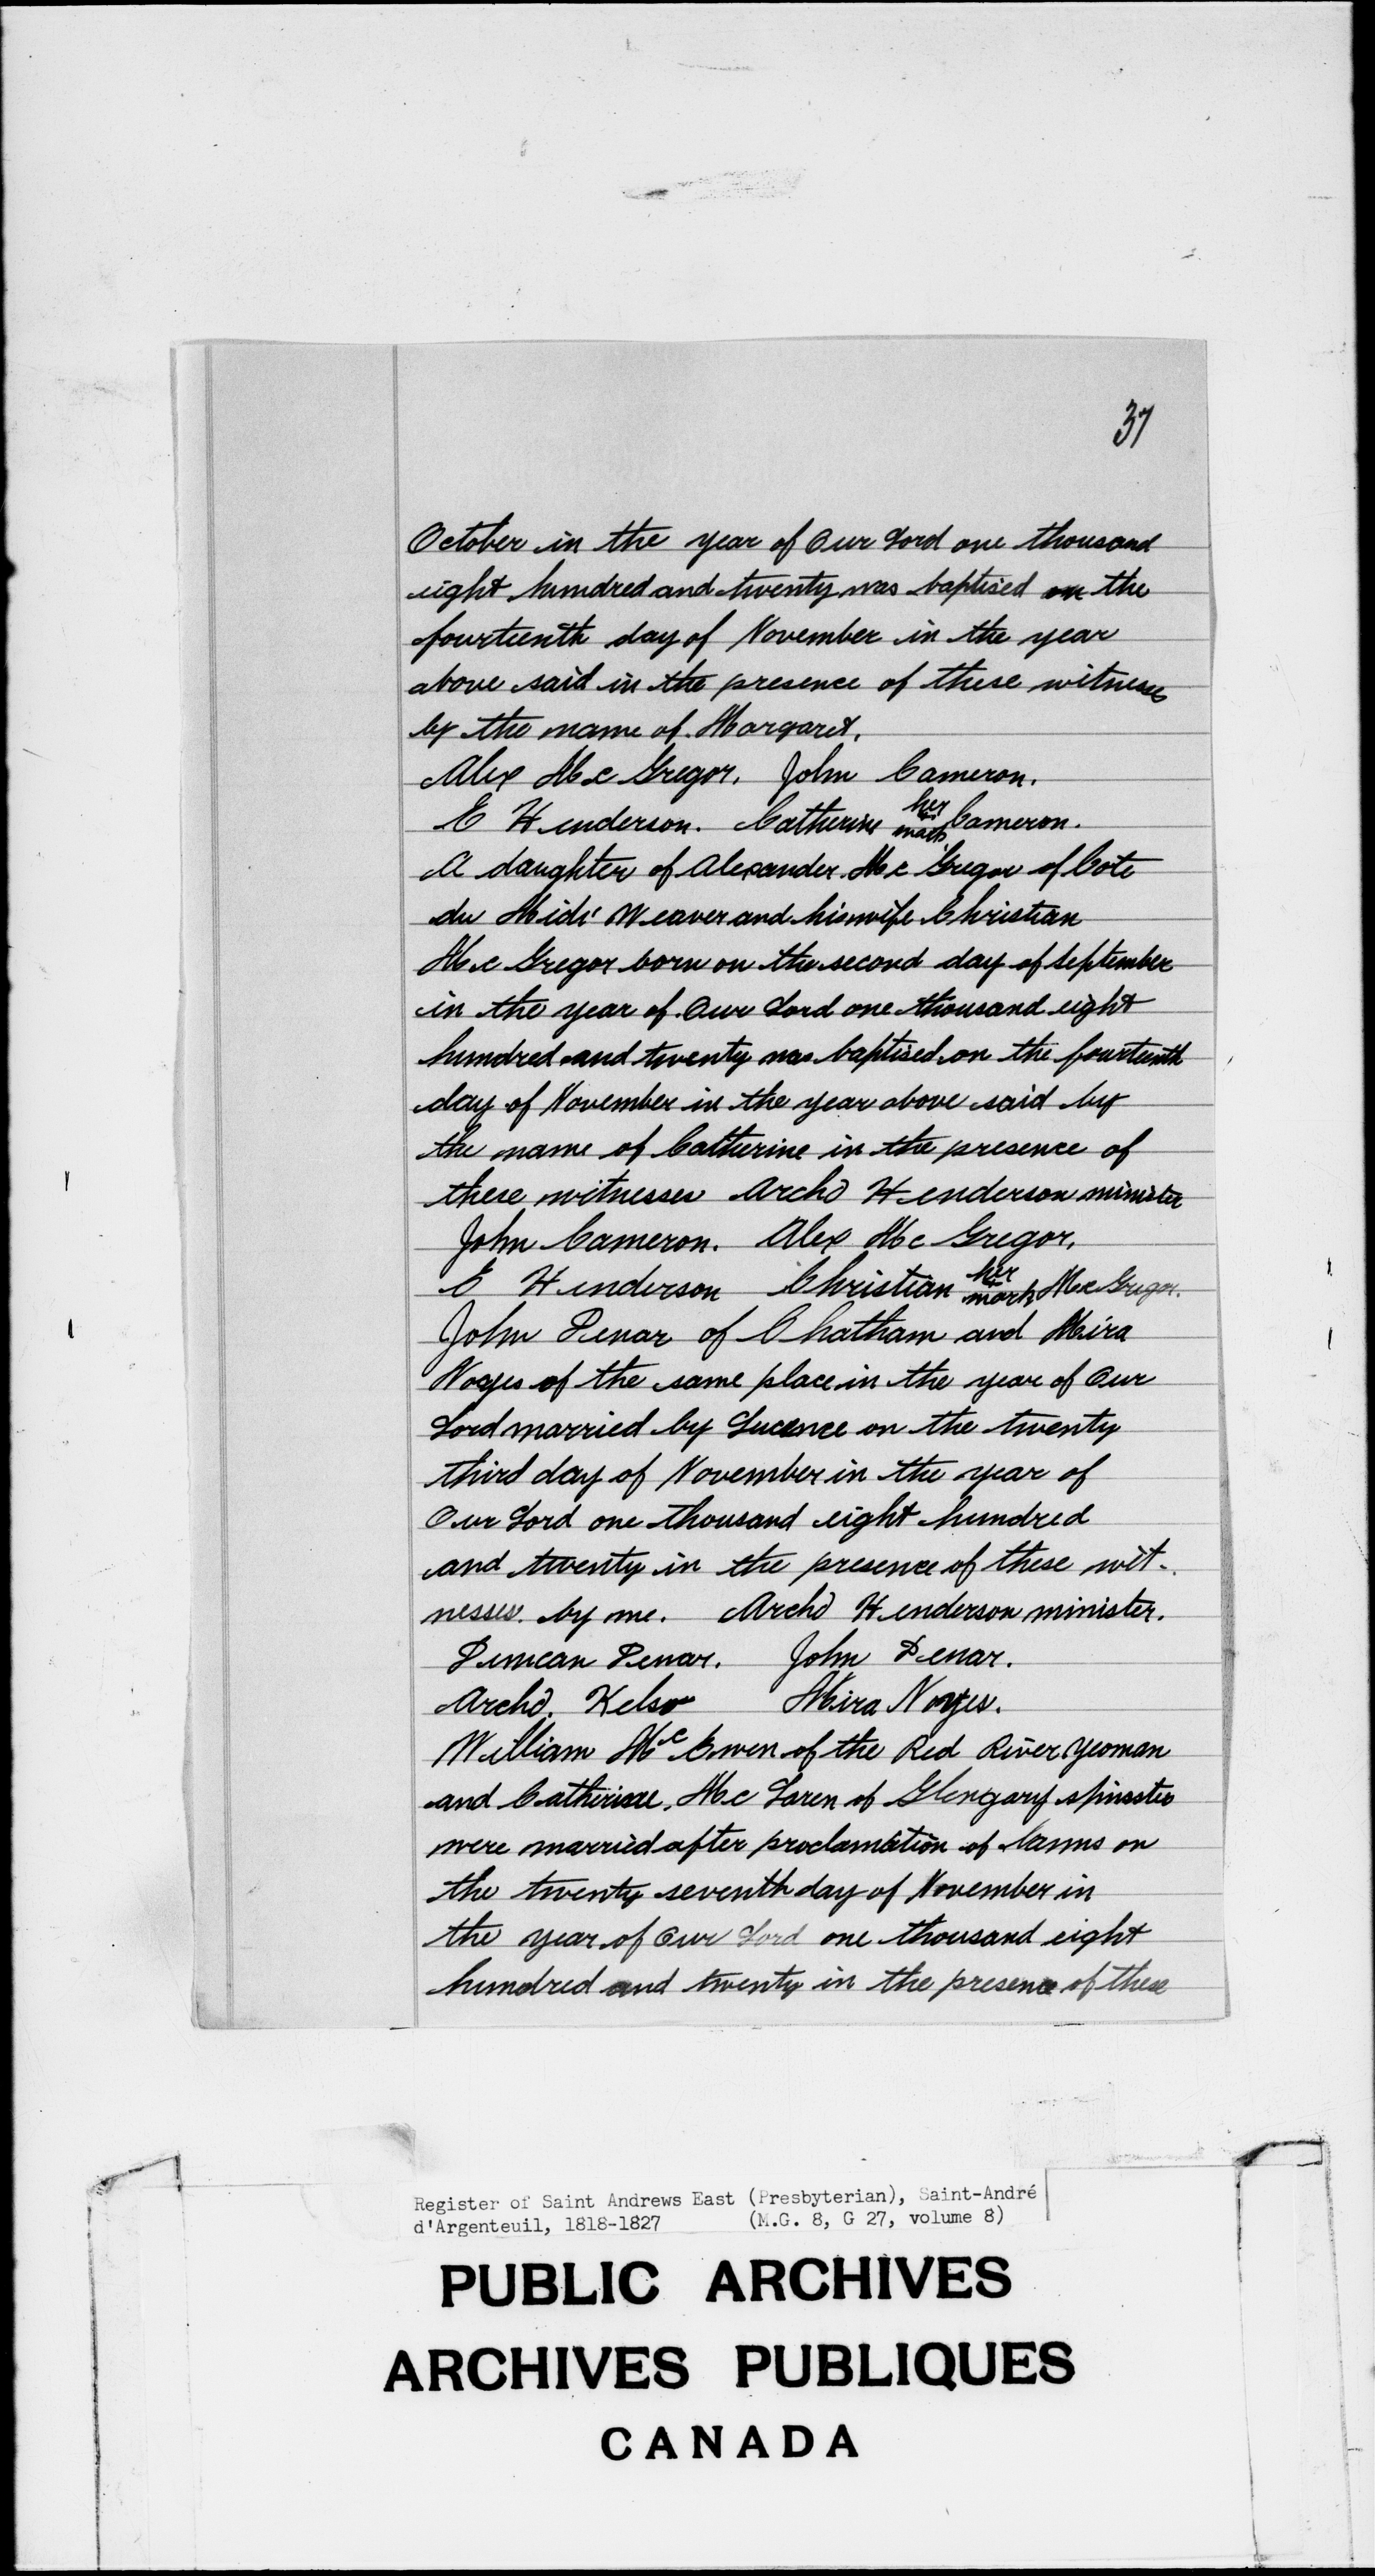 37
October in the year of Our Lord one thousand
eight hundred and twenty was baptised on the
fourteenth day of November in the year
above said in the presence of these witnesses
by the name of Margaret.
Alex Mc Gregor. John Cameron.
E Henderson. Catherine her + mark Cameron.
A daughter of Alexander Mc Gregor of Cote
du Midi Weaver and his wife Christian
Mc Gregor born on the second day of September
in the year of Our Lord one thousand eight
hundred and twenty was baptised on the fourteenth
day of November in the year above said by
the name of Catherine in the presence of
these witnesses Archd Henderson minister
John Cameron. Alex Mc Gregor.
E Henderson Christian her + mark Mc Gregor.
John Dewar of Chatham and Mira
Noyes of the same place in the year of Our
Lord married by Lucence on the twenty
third day of November in the year of
Our Lord one thousand eight hundred
and twenty in the presence of these wit-
nesses. by me. Archd Henderson minister.
Duncan Dewar. John Dewar.
Archd. Kelso Mira Noyes.
William Mc Ewen of the Red River yeoman
and Catherine Mc Laren of Glengary spinster
were married after proclamation of banns on
the twenty seventh day of November in
the year of Our Lord one thousand eight
hundred and twenty in the presence of these
Register of Saint Andrews East (Presbyterian), Saint-André
d'Argenteuil, 1818-1827 (M.G. 8, G 27, volume 8)
PUBLIC ARCHIVES
ARCHIVES PUBLIQUES
CANADA